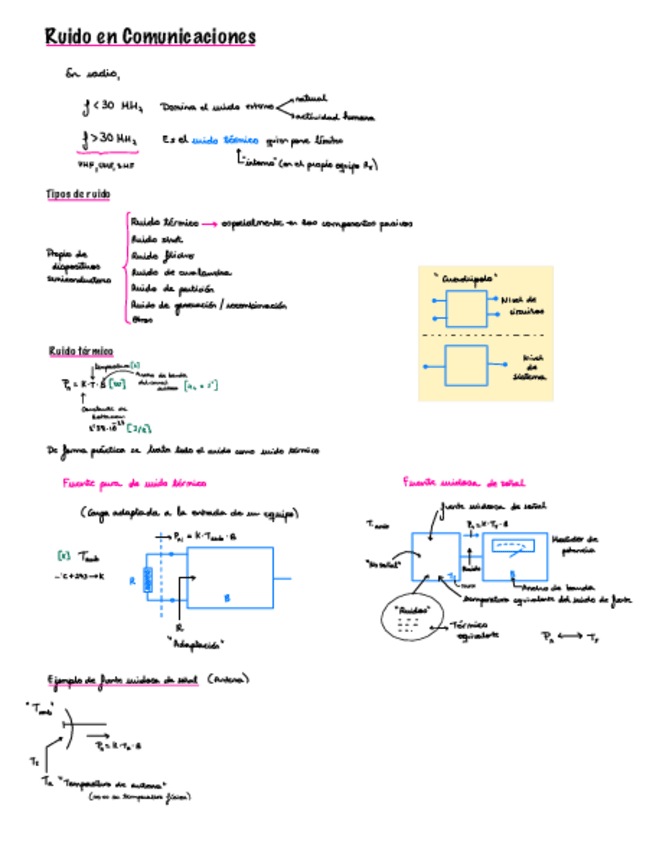 Ruido en Comunicaciones
En radio,
f < 30 MHz Domina el ruido externo natural
actividad humana
f > 30 MHz Es el ruido térmico quien pone límites
VHF, UHF, SHF "interno" (en el propio equipo Rx)
Tipos de ruido
Propio de dispositivos semiconductores
Ruido térmico → especialmente en los componentes pasivos
Ruido shot
Ruido flicker
Ruido de avalancha
Ruido de partición
Ruido de generación / recombinación
Otros
"Cuadripolo"
Nivel de circuitos
Nivel de sistema
Ruido térmico
Temperatura [K]
Pn = K·T·B [W]
Ancho de banda del canal
Constante de Boltzmann
1'38·10^-23 [J/K]
De forma práctica se trata todo el ruido como ruido térmico
Fuente pura de ruido térmico
(Carga adaptada a la entrada de un equipo)
[K] Tamb
°C + 273 → K
R
Pni = K·Tamb·B
B
R
"Adaptación"
Fuente ruidosa de señal
fuente ruidosa de señal
Tamb
"No señal"
Medidor de potencia
Ruido
B
Ancho de banda
temperatura equivalente del ruido de fuente
"Ruidos"
Térmico equivalente
Ejemplo de fuente ruidosa de señal (Antena)
"Tamb"
Pn = K·Ta·B
Ta "Temperatura de antena"
(no es su temperatura física)